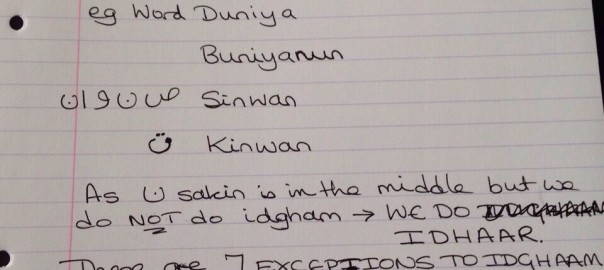 eg Word Duniya
Buniyanun
صنوان Sinwan
ق Kinwan
As ن sakin is in the middle but we
do NOT do idgham → WE DO
IDHAAR.
There are 7 EXCEPTIONS TO IDGHAAM